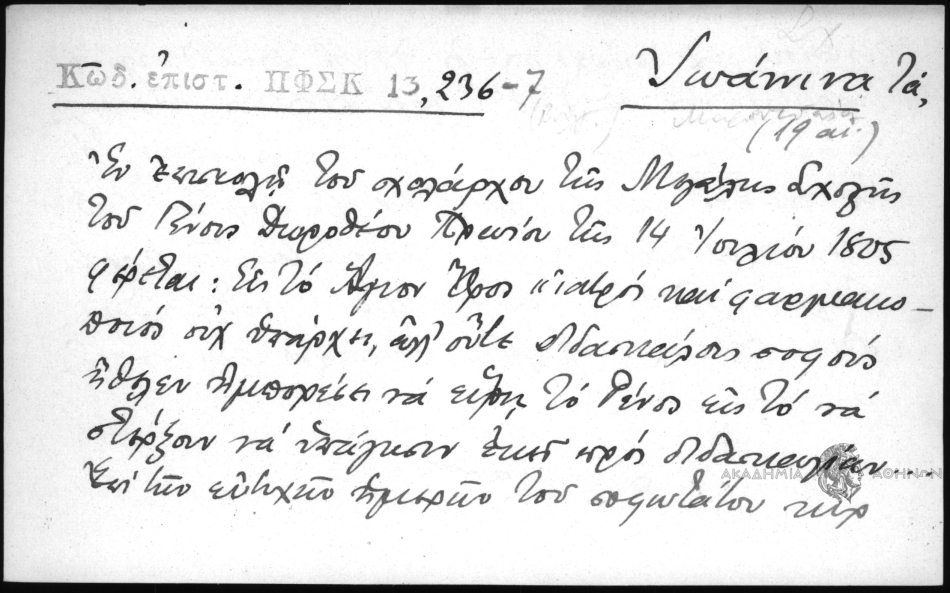 Κῶδ. ἐπιστ. ΠΦΣΚ 13, 236-7
Ἰωάννινα τά,
(19 αἰ.)
Ἐν ἐπιστολῇ τοῦ σχολάρχου τῆς Μεγάλης Σχολῆς
τοῦ Γένους Δωροθέου Πρωίου τῆς 14 Ἰουλίου 1805
φέρεται: Εἰς τό Ἅγιον Ὄρος ἰατρός καί φαρμακο-
ποιός οὐχ ὑπάρχει, ἀλλ' οὔτε διδασκάλους σοφούς
ἤθελεν ἠμπορέσει νά εὕρῃ τό Γένος εἰς τό νά
στέρξουν νά ὑπάγωσιν ἐκεῖ πρός διδασκαλίαν...
Ἐπί τῶν εὐτυχῶν ἡμερῶν τοῦ σοφωτάτου κυρ
ΑΚΑΔΗΜΙΑ ΑΘΗΝΩΝ